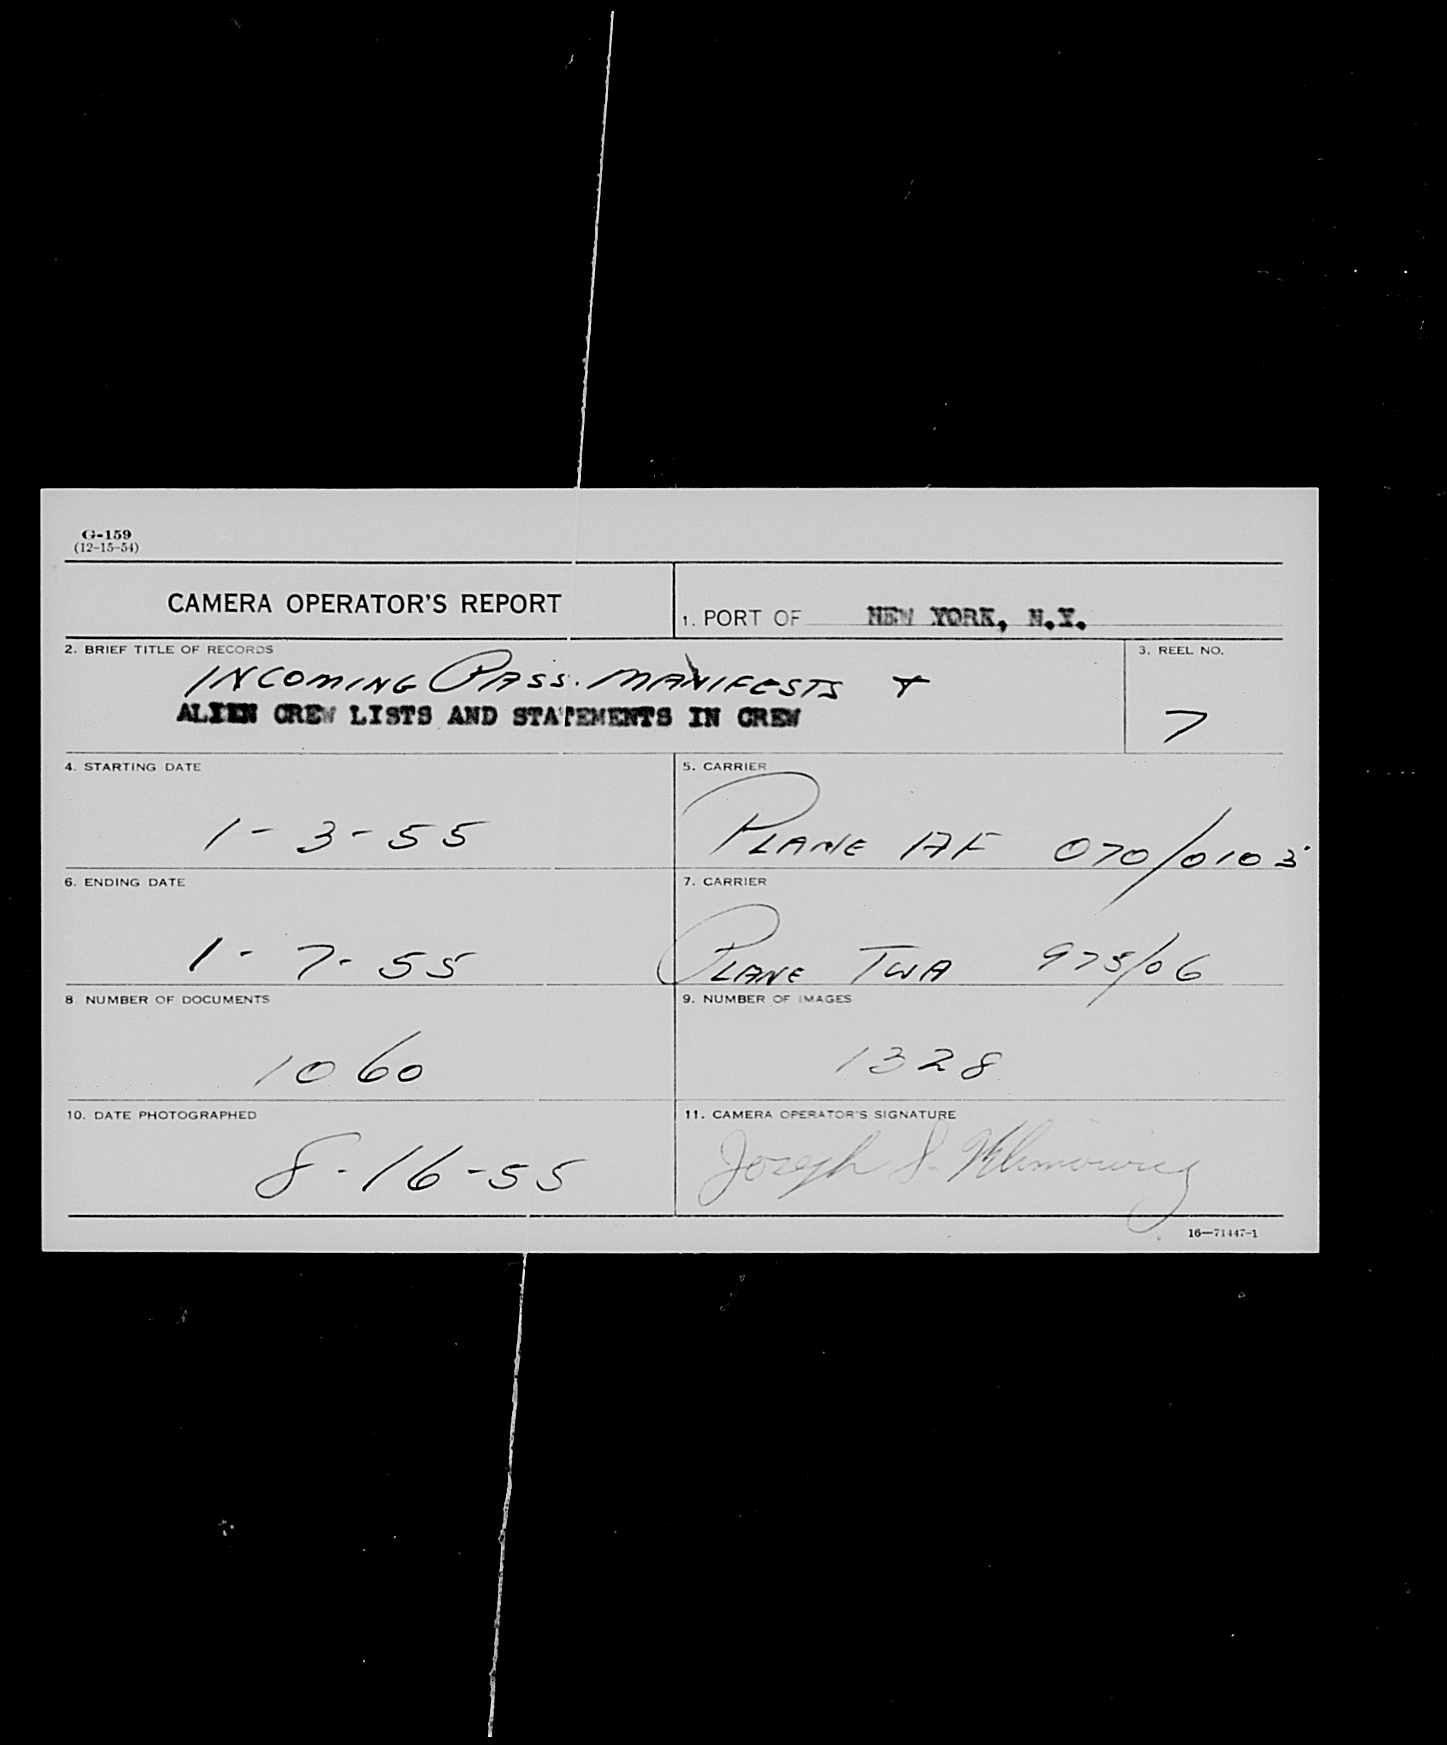 G-159
(12-15-54)
CAMERA OPERATOR'S REPORT
1. PORT OF NEW YORK, N.Y.
2. BRIEF TITLE OF RECORDS
INCOMING PASS. MANIFESTS +
ALIEN CREW LISTS AND STATEMENTS IN CREW
3. REEL NO.
7
4. STARTING DATE
1-3-55
5. CARRIER
PLANE AF 070/0103
6. ENDING DATE
1-7-55
7. CARRIER
PLANE TWA 975/06
8 NUMBER OF DOCUMENTS
1060
9. NUMBER OF IMAGES
1328
10. DATE PHOTOGRAPHED
8-16-55
11. CAMERA OPERATOR'S SIGNATURE
Joseph S.
16—71447-1